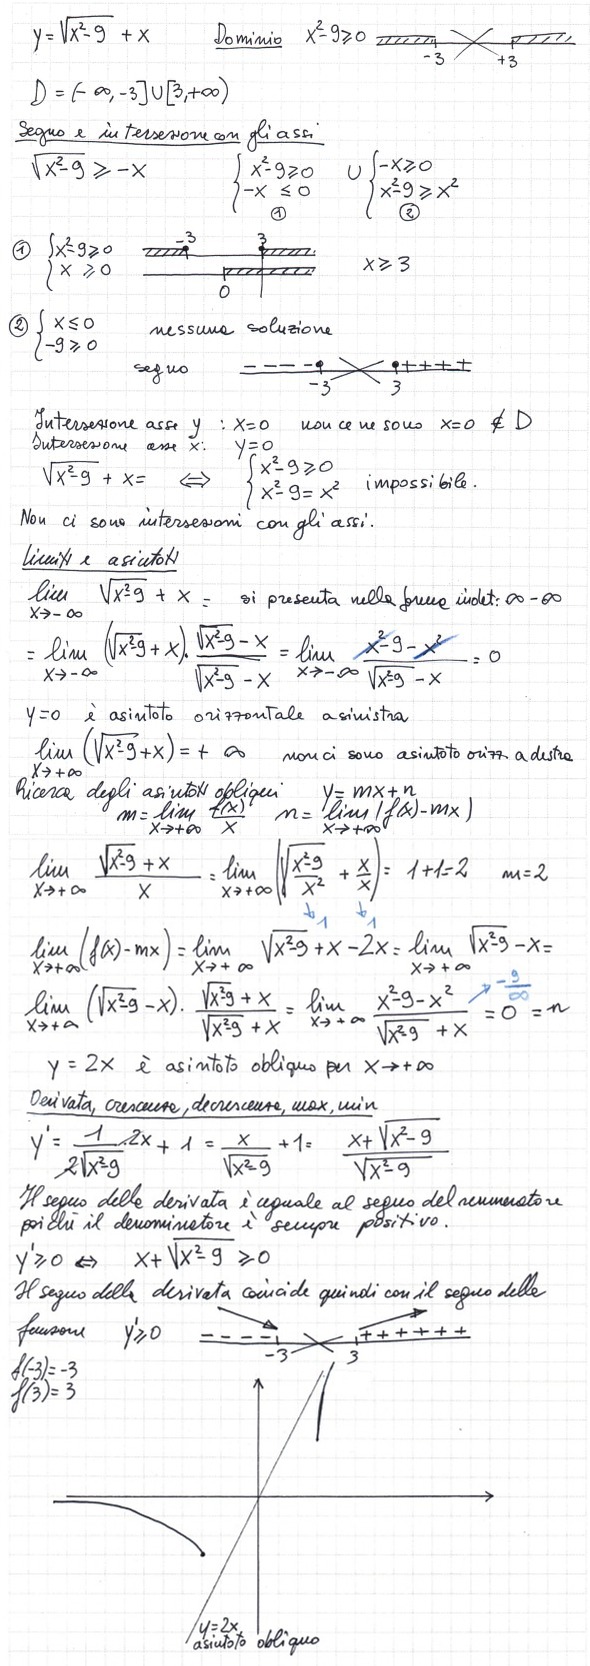 y = √(x²-9) + x Dominio x²-9≥0 -3 +3
D = (-∞, -3] ∪ [3, +∞)
Segno e intersezione con gli assi
√(x²-9) ≥ -x { x²-9≥0 ∪ { -x≥0
-x ≤ 0 x²-9 ≥ x²
① ②
① { x²-9≥0 -3 3
x ≥ 0 0 x ≥ 3
② { x ≤ 0 nessuna soluzione
-9 ≥ 0
segno - - - - -3 3 + + + +
Intersezione asse y : x=0 non ce ne sono x=0 ∉ D
Intersezione asse x: y=0
√(x²-9) + x = ⇔ { x²-9≥0
x²-9 = x² impossibile.
Non ci sono intersezioni con gli assi.
Limiti e asintoti
lim x→-∞ √(x²-9) + x = si presenta nella forma indet: ∞-∞
= lim x→-∞ (√(x²-9) + x) · (√(x²-9) - x)/(√(x²-9) - x) = lim x→-∞ (x²-9-x²)/(√(x²-9) - x) = 0
y=0 è asintoto orizzontale a sinistra
lim x→+∞ (√(x²-9) + x) = + ∞ non ci sono asintoto orizz a destra
Ricerca degli asintoti obliqui y = mx+n
m = lim x→+∞ f(x)/x n = lim x→+∞ (f(x)-mx)
lim x→+∞ (√(x²-9) + x)/x = lim x→+∞ (√((x²-9)/x²) + x/x) = 1+1=2 m=2
↓1 ↓1
lim x→+∞ (f(x)-mx) = lim x→+∞ √(x²-9) + x - 2x = lim x→+∞ √(x²-9) - x =
lim x→+∞ (√(x²-9) - x) · (√(x²-9) + x)/(√(x²-9) + x) = lim x→+∞ (x²-9-x²)/(√(x²-9) + x) → -9/∞ = 0 = n
y = 2x è asintoto obliquo per x→+∞
Derivata, crescenza, decrescenza, max, min
y' = 1/(2√(x²-9)) · 2x + 1 = x/√(x²-9) + 1 = (x+√(x²-9))/√(x²-9)
Il segno della derivata è uguale al segno del numeratore
poiché il denominatore è sempre positivo.
y'≥0 ⇔ x+√(x²-9) ≥0
Il segno della derivata coincide quindi con il segno della
funzione y'≥0 - - - - -3 3 + + + + + +
f(-3)=-3
f(3)=3
y=2x
asintoto obliquo